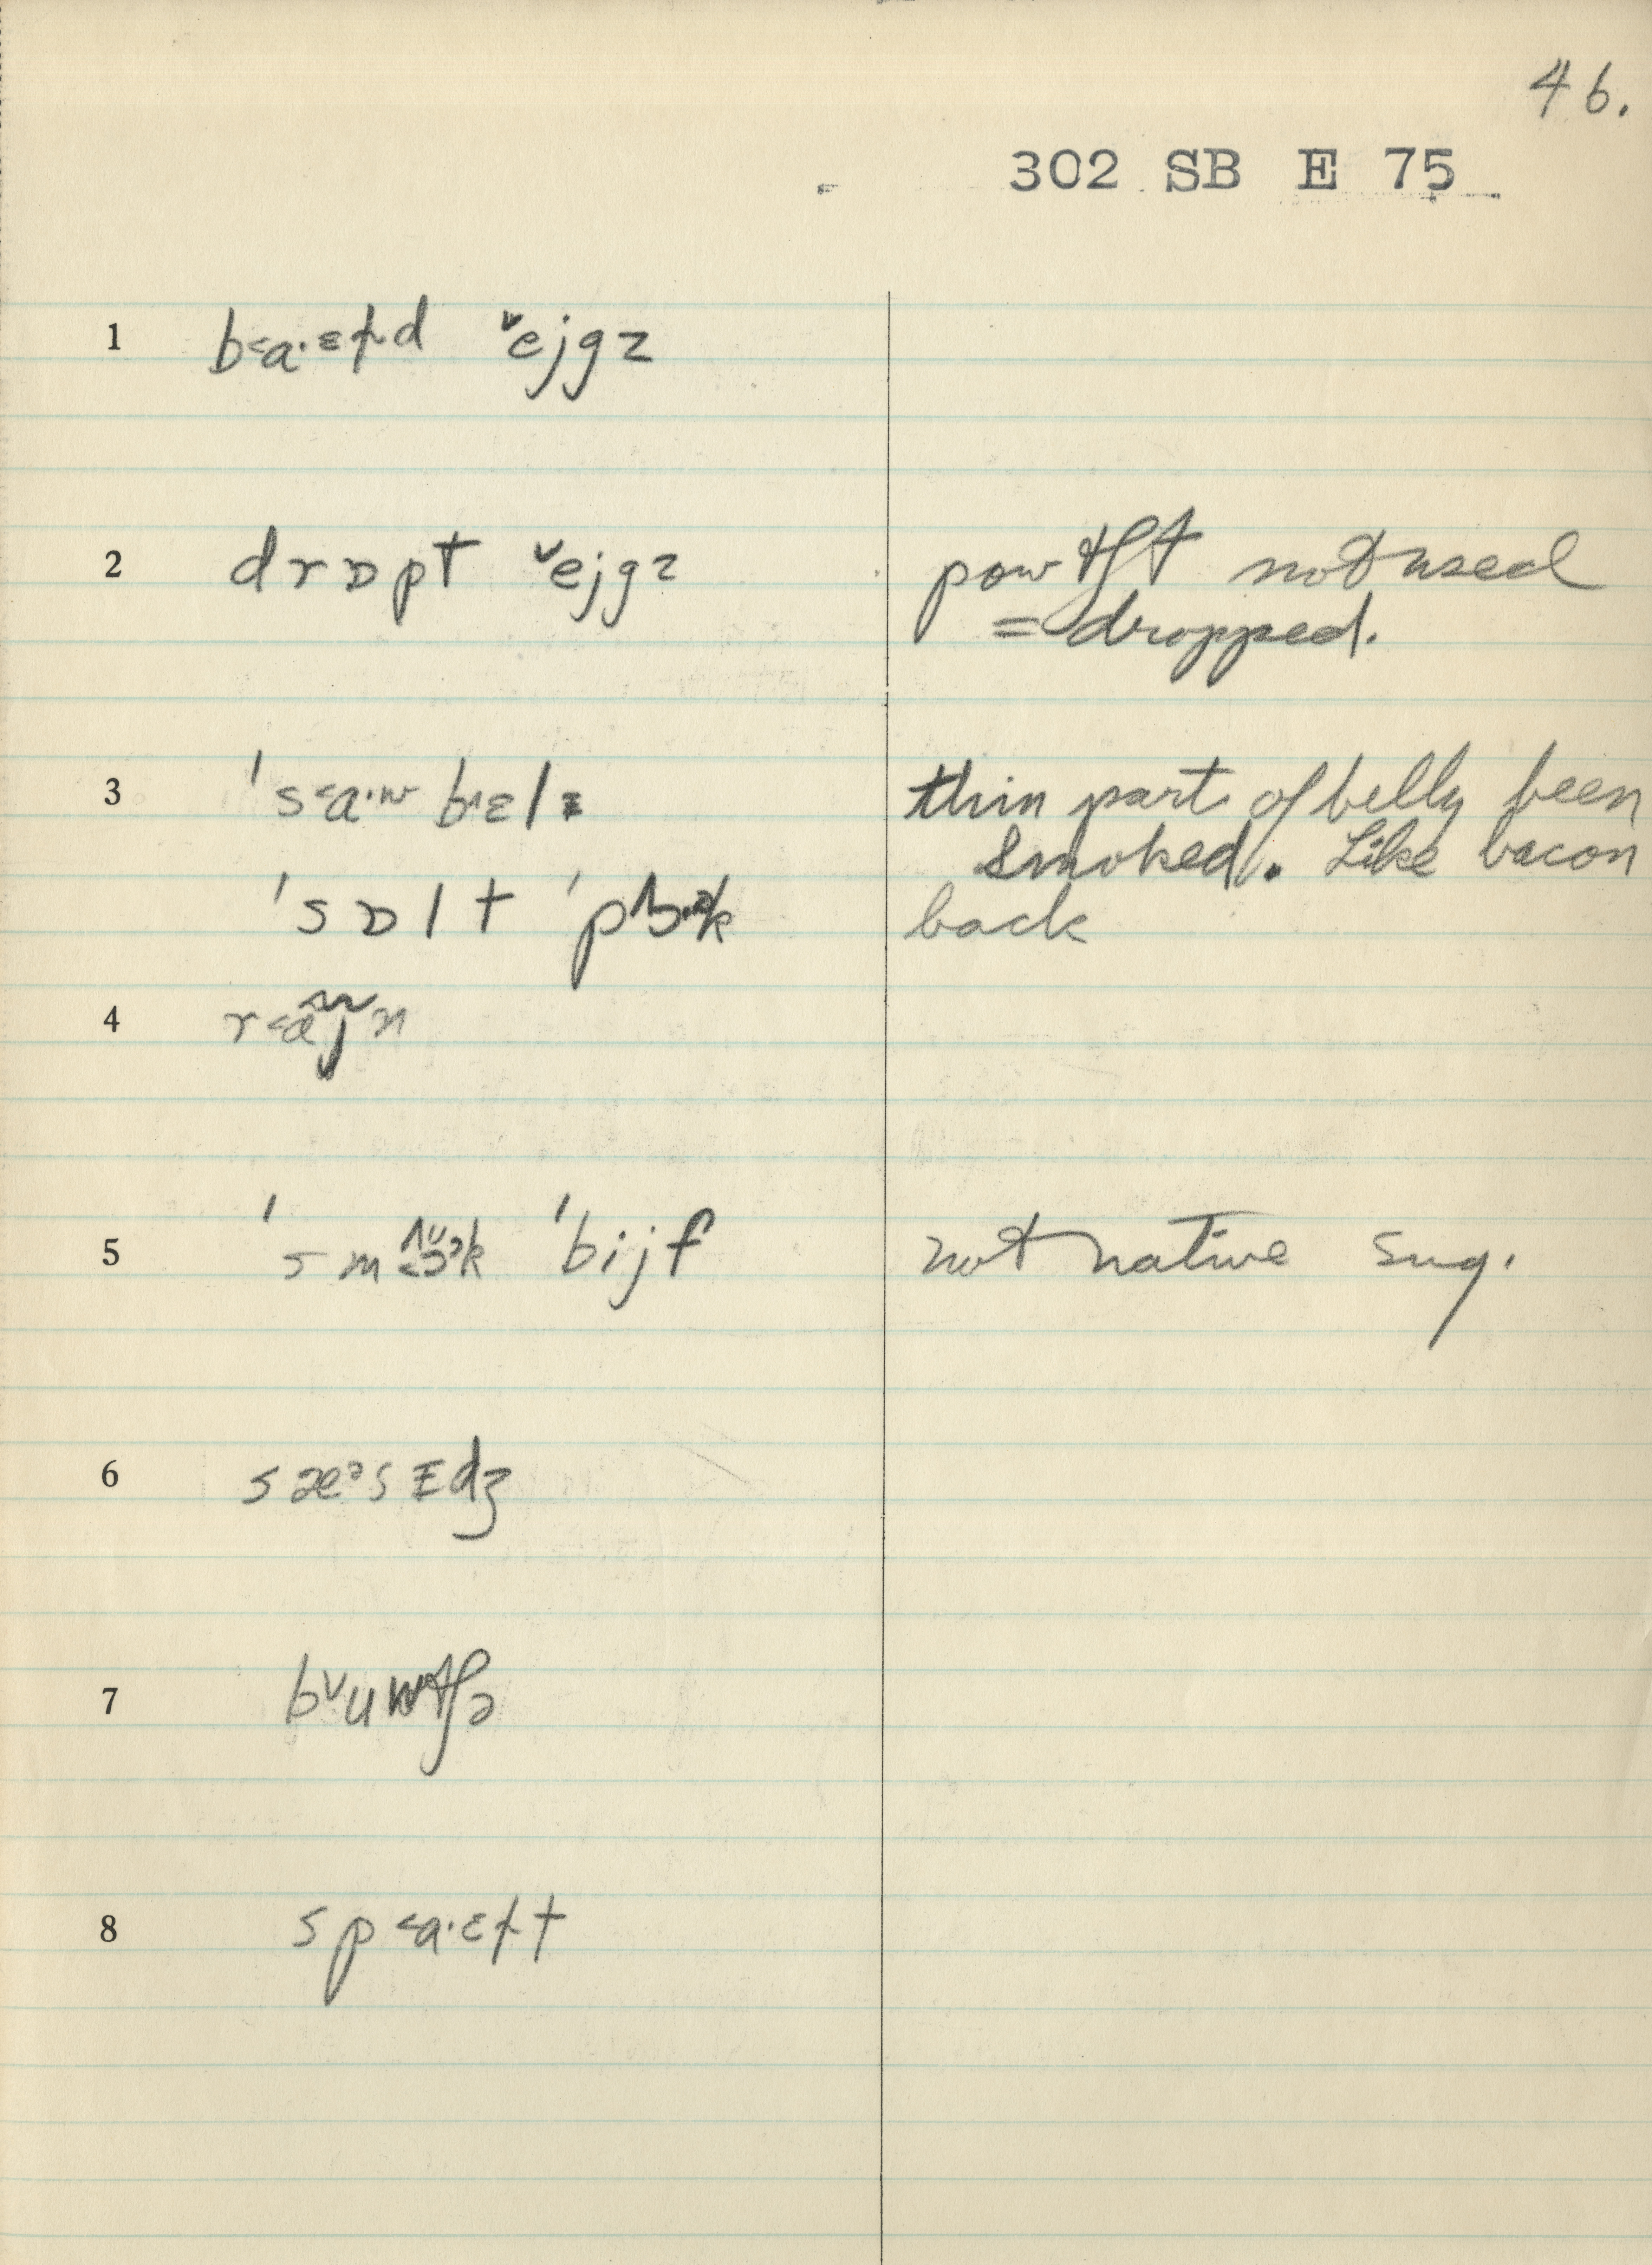 46.
302 SB E 75
1 b˂a·ɛɫd ˇejgz
2 drɒpt ˇejgz
powtʃt not used
= dropped.
3 's˂a·w b˄ɛlɪ
thin part of belly been
smoked. Like bacon
'sɒlt 'p˄ɔ·ək
back
4 r˂ãj̃n
5 'sm 'bijf
not native sug.
6 sæᵊsɪdʒ
7 bˇuwtʃə
8 sp˂a·ɛɫt